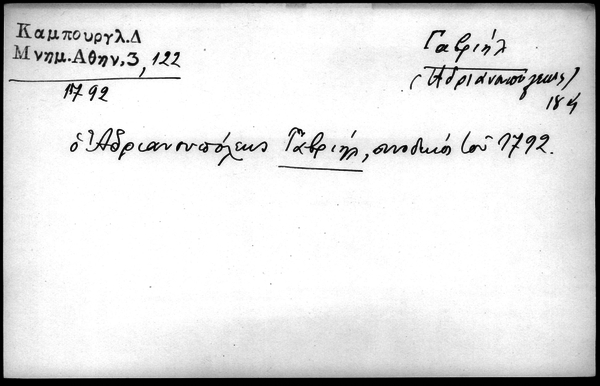 Καμπουργλ.Δ
Μνημ.Αθην.3, 122
1792
Γαβριήλ
(Ἀδριανουπόλεως)
18ος
ὁ Ἀδριανουπόλεως Γαβριήλ, συνοδικός τοῦ 1792.